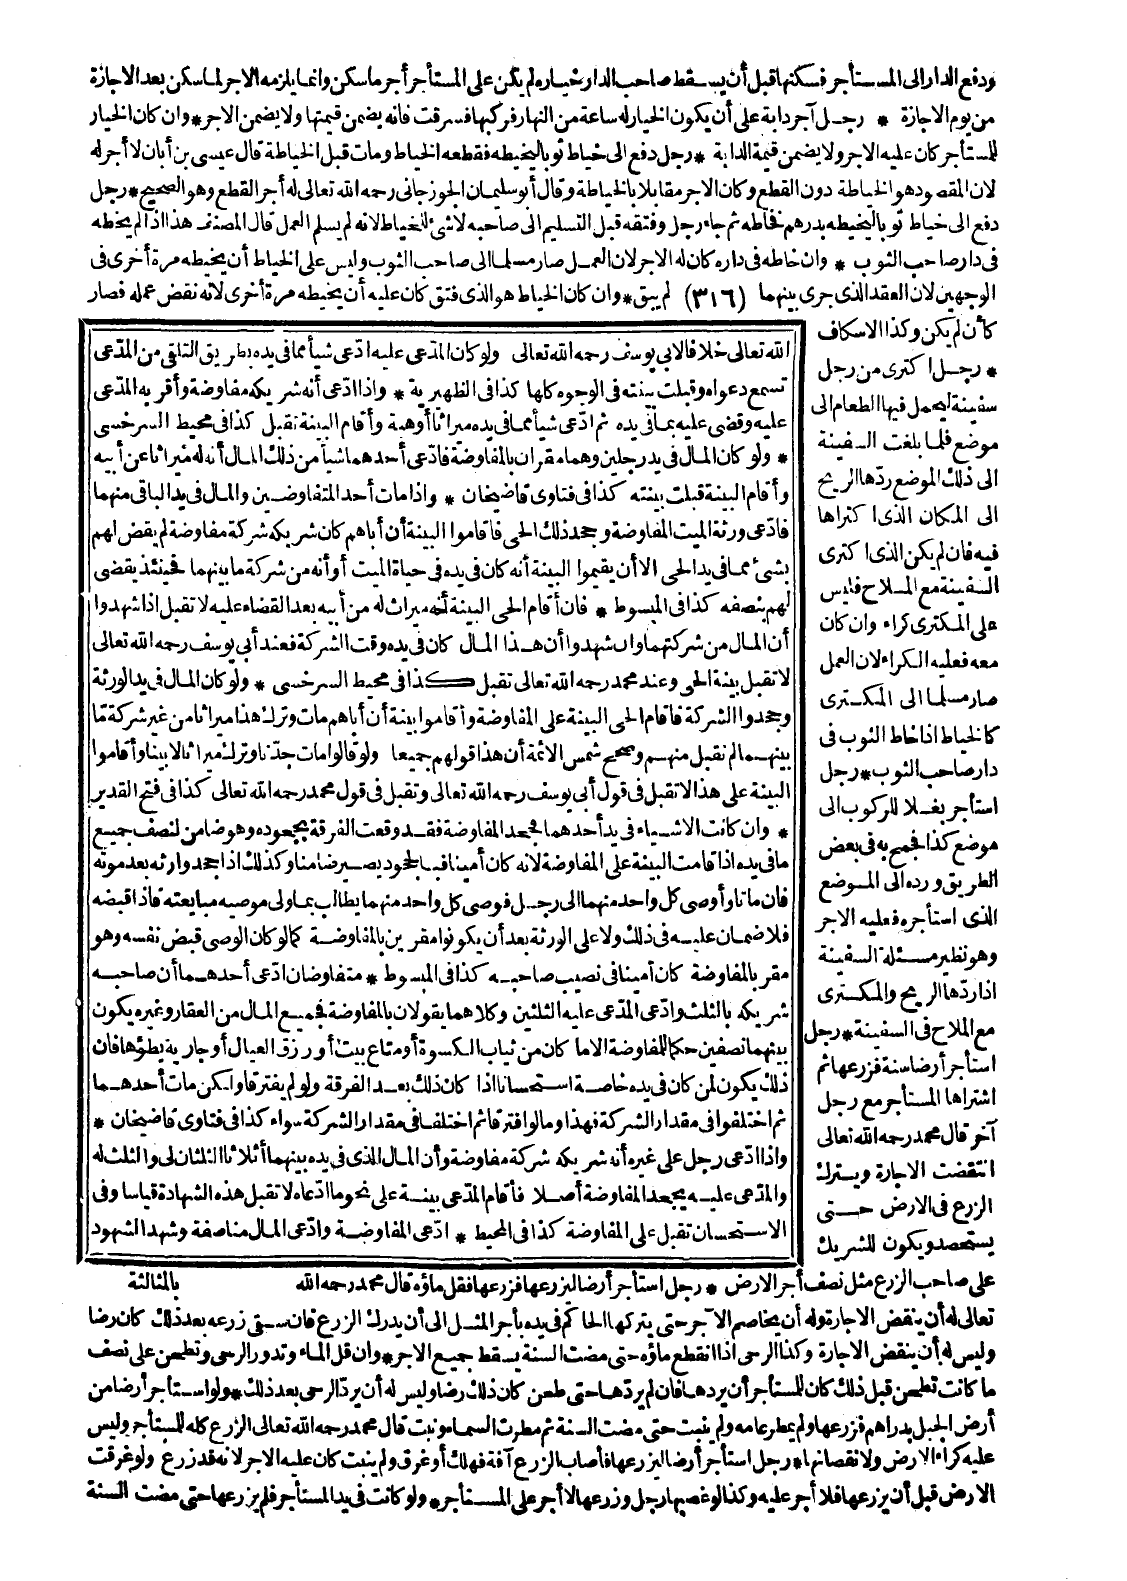 ودفع الدار الى المستأجر فسكنها قبل أن يسقط صاحب الدار خياره لم يكن على المستأجر أجر ما سكن وانما يلزمه الاجر لما سكن بعد الاجازة
من يوم الاجازة * رجل آجر دابة على أن يكون الخيار له ساعة من النهار فركبها فسرقت فانه يضمن قيمتها ولا يضمن الاجر * وان كان الخيار
للمستأجر كان عليه الاجر ولا يضمن قيمة الدابة * رجل دفع الى خياط ثوبا ليخيطه فقطعه الخياط ومات قبل الخياطة قال عيسى بن أبان لا أجر له
لان المقصود هو الخياطة دون القطع وكان الاجر مقابلا بالخياطة وقال أبو سليمان الجوزجاني رحمه الله تعالى له أجر القطع وهو الصحيح * رجل
دفع الى خياط ثوبا ليخيطه بدرهم فخاطه ثم جاء رجل وفتقه قبل التسليم الى صاحبه لا شئ للخياط لانه لم يسلم العمل قال المصنف هذا اذا لم يخطه
فى دار صاحب الثوب * وان خاطه فى داره كان له الاجر لان العمل صار مسلما الى صاحب الثوب وليس على الخياط أن يخيطه مرة أخرى فى
الوجهين لان العقد الذى جرى بينهما (٣١٦) لم يبق * وان كان الخياط هو الذى فتق كان عليه أن يخيطه مرة أخرى لانه نقض عمله فصار
كأن لم يكن وكذا الاسكاف
* رجل اكترى من رجل
سفينة ليحمل فيها الطعام الى
موضع فلما بلغت السفينة
الى ذلك الموضع ردها الريح
الى المكان الذى اكتراها
فيه فان لم يكن الذى اكترى
السفينة مع الملاح فليس
على المكترى كراء وان كان
معه فعليه الكراء لان العمل
صار مسلما الى المكترى
كالخياط اذا خاط الثوب فى
دار صاحب الثوب * رجل
استأجر بغلا للركوب الى
موضع كذا فجمح به فى بعض
الطريق ورده الى الموضع
الذى استأجره فعليه الاجر
وهو نظير مسئلة السفينة
اذا ردها الريح والمكترى
مع الملاح فى السفينة * رجل
استأجر أرضا سنة فزرعها ثم
اشتراها المستأجر مع رجل
آخر قال محمد رحمه الله تعالى
انتقضت الاجارة ويترك
الزرع فى الارض حتى
يستحصد ويكون للشريك
على صاحب الزرع مثل نصف أجر الارض * رجل استأجر أرضا ليزرعها فزرعها فقل ماؤه قال محمد رحمه الله
تعالى له أن ينقض الاجارة وله أن يخاصم الآجر حتى يتركها الحاكم فى يده بأجر المثل الى أن يدرك الزرع فان سقى زرعه بعد ذلك كان رضا
وليس له أن ينقض الاجارة وكذا الرحى اذا انقطع ماؤه حتى مضت السنة يسقط جميع الاجر * وان قل الماء وتدور الرحى وتطحن على نصف
ما كانت تطحن قبل ذلك كان للمستأجر أن يردها فان لم يردها حتى طحن كان ذلك رضا وليس له أن يرد الرحى بعد ذلك * ولو استأجر أرضا من
أرض الجبل بدراهم فزرعها ولم يمطر عامه ولم ينبت حتى مضت السنة ثم مطرت السماء ونبت قال محمد رحمه الله تعالى الزرع كله للمستأجر وليس
عليه كراء الارض ولا نقصانها * رجل استأجر أرضا ليزرعها فأصاب الزرع آفة فهلك أو غرق ولم ينبت كان عليه الاجر لانه قد زرع ولو غرقت
الارض قبل أن يزرعها فلا أجر عليه وكذا لو غصبها رجل وزرعها لا أجر على المستأجر * ولو كانت فى يد المستأجر فلم يزرعها حتى مضت السنة
الله تعالى خلافا لابى يوسف رحمه الله تعالى ولو كان المدّعى عليه ادّعى شيأ مما فى يده بطريق التلقى من المدّعى
تسمع دعواه وقبلت بينته فى الوجوه كلها كذا فى الظهيرية * واذا ادّعى أنه شريكه مفاوضة وأقر به المدّعى
عليه وقضى عليه بما فى يده ثم ادّعى شيأ مما فى يده ميراثا أو هبة وأقام البينة تقبل كذا فى محيط السرخسى
* ولو كان المال فى يد رجلين وهما مقران بالمفاوضة فادّعى أحدهما شيأ من ذلك المال أنه له ميراثا عن أبيه
وأقام البينة قبلت بينته كذا فى فتاوى قاضيخان * واذا مات أحد المتفاوضين والمال فى يد الباقى منهما
فادّعى ورثة الميت المفاوضة وجحد ذلك الحى فاقاموا البينة أن أباهم كان شريكه شركة مفاوضة لم يقض لهم
بشئ مما فى يد الحى الا أن يقيموا البينة أنه كان فى يده فى حياة الميت أو أنه من شركة ما بينهما فحينئذ يقضى
لهم بنصفه كذا فى المبسوط * فان أقام الحى البينة أنه ميراث له من أبيه بعد القضاء عليه لا تقبل اذا شهدوا
أن المال من شركتهما وان شهدوا أن هذا المال كان فى يده وقت الشركة فعند أبى يوسف رحمه الله تعالى
لا تقبل بينة الحى وعند محمد رحمه الله تعالى تقبل كذا فى محيط السرخسى * ولو كان المال فى يد الورثة
وجحدوا الشركة فاقام الحى البينة على المفاوضة وأقاموا بينة أن أباهم مات وترك هذا ميراثا من غير شركة ما
بينهما لم تقبل منهم وصحح شمس الائمة أن هذا قولهم جميعا ولو قالوا مات جدّنا وترك ميراثا لابينا وأقاموا
البينة على هذا لا تقبل فى قول أبى يوسف رحمه الله تعالى وتقبل فى قول محمد رحمه الله تعالى كذا فى فتح القدير
* وان كانت الاشياء فى يد أحدهما فجحد المفاوضة فقد وقعت الفرقة بجحوده وهو ضامن لنصف جميع
ما فى يده اذا قامت البينة على المفاوضة لانه كان أمينا فبالجحود يصير ضامنا وكذلك اذا جحد وارثه بعد موته
فان ماتا وأوصى كل واحد منهما الى رجل فوصى كل واحد منهما يطالب بما ولى موصيه مبايعته فاذا قبضه
فلا ضمان عليه فى ذلك ولا على الورثة بعد أن يكونوا مقرين بالمفاوضة كما لو كان الوصى قبض نفسه وهو
مقر بالمفاوضة كان أمينا فى نصيب صاحبه كذا فى المبسوط * متفاوضان ادّعى أحدهما أن صاحبه
شريكه بالثلث وادّعى المدّعى عليه الثلثين وكلاهما يقولان بالمفاوضة فجميع المال من العقار وغيره يكون
بينهما نصفين حكما للمفاوضة الا ما كان من ثياب الكسوة أو متاع بيت أو رزق العيال أو جارية يطؤها فان
ذلك يكون لمن كان فى يده خاصة استحسانا اذا كان ذلك بعد الفرقة ولو لم يفترقا ولكن مات أحدهما
ثم اختلفوا فى مقدار الشركة فهذا وما لو افترقا ثم اختلفا فى مقدار الشركة سواء كذا فى فتاوى قاضيخان *
واذا ادّعى رجل على غيره أنه شريكه شركة مفاوضة وأن المال الذى فى يده بينهما أثلاثا الثلثان لى والثلث له
والمدّعى عليه يجحد المفاوضة أصلا فأقام المدّعى بينة على نحو ما ادّعاه لا تقبل هذه الشهادة قياسا وفى
الاستحسان تقبل على المفاوضة كذا فى المحيط * ادّعى المفاوضة وادّعى المال مناصفة وشهد الشهود
بالمثالثة